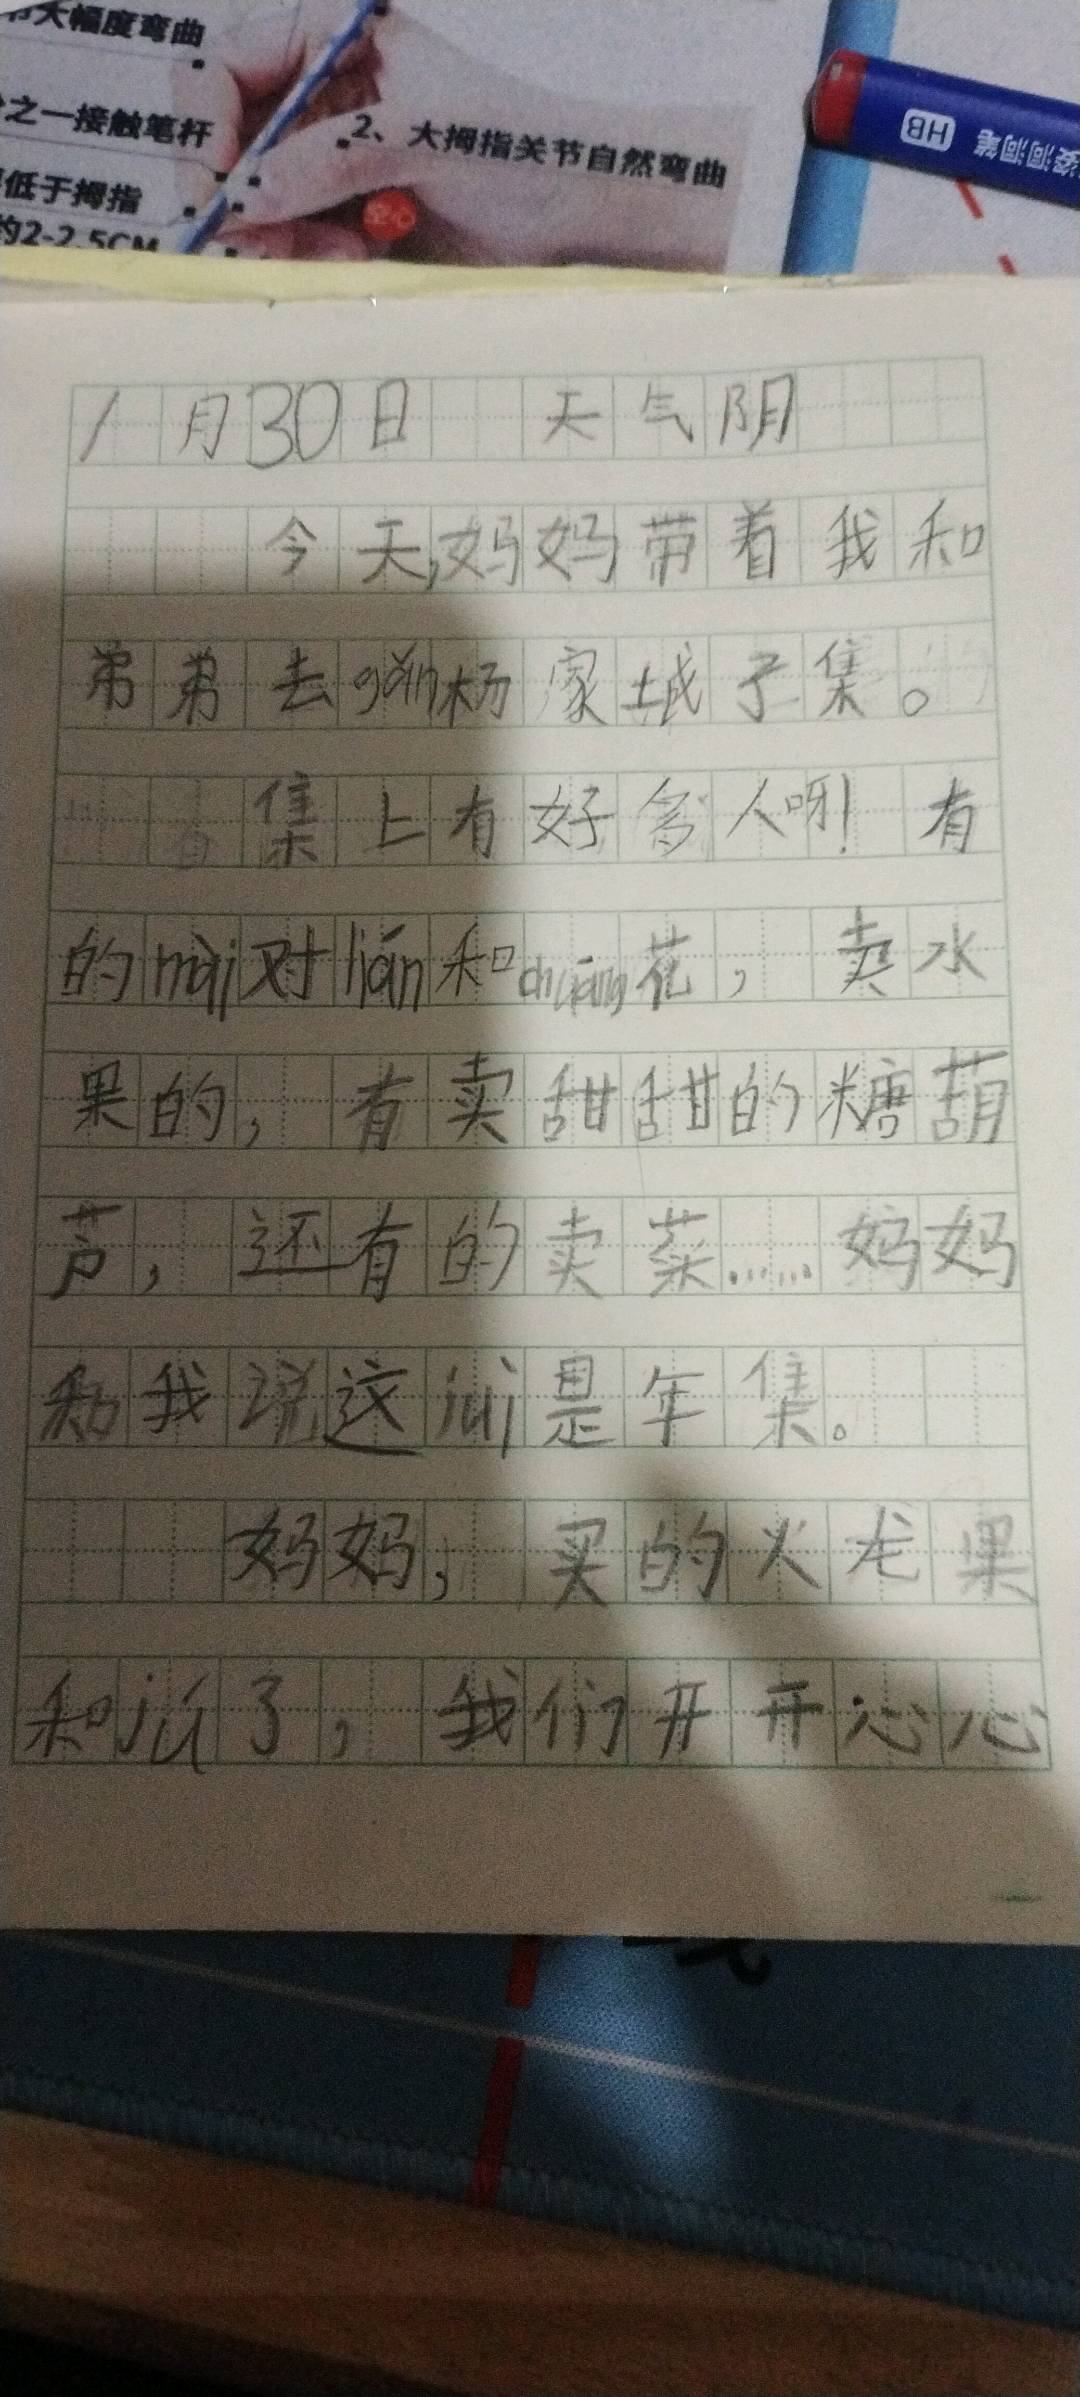 节大幅度弯曲
分之一接触笔杆
低于拇指
约2-2.5CM
2、大拇指关节自然弯曲
HB 姿洞洞笔
1月30日 天气阴
今天,妈妈带着我和
弟弟去gǎn杨家城子集。
集上有好多人呀!有
的mài对lián和chuāng花,卖水
果的,有卖甜甜的糖葫
芦,还有的卖菜......妈妈
和我说这jiù是年集。
妈妈,买的火龙果
和jú了,我们开开心心